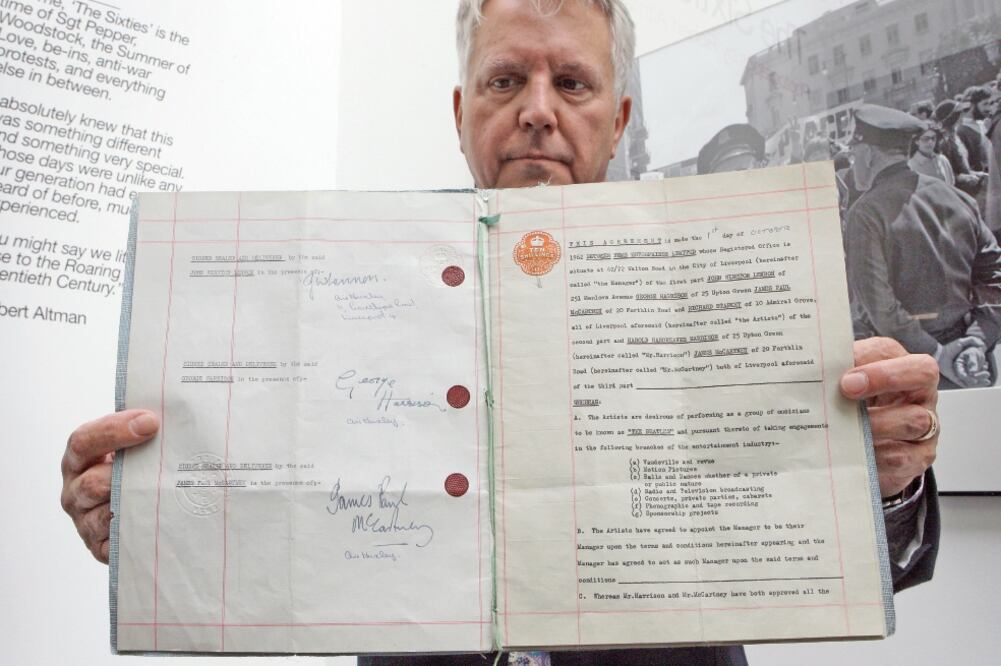 me, 'The Sixties' is the
time of Sgt Pepper,
Woodstock, the Summer of
Love, be-ins, anti-war
protests, and everything
else in between.
absolutely knew that this
was something different
nd something very special.
hose days were unlike any
ur generation had e
eard of before, mu
xperienced.
u might say we lit
se to the Roaring
entieth Century."
bert Altman
SIGNED SEALED AND DELIVERED by the said
JOHN WINSTON LENNON in the presence of:-
JWLennon.
Liverpool 4
SIGNED SEALED AND DELIVERED by the said
GEORGE HARRISON in the presence of:-
George
Harrison
SIGNED SEALED AND DELIVERED by the said
JAMES PAUL McCARTNEY in the presence of:-
James Paul
McCartney
TEN
SHILLINGS
THIS AGREEMENT is made the 1st day of OCTOBER
1962 BETWEEN NEMS ENTERPRISES LIMITED whose Registered Office is
situate at 62/72 Walton Road in the City of Liverpool (hereinafter
called "the Manager") of the first part JOHN WINSTON LENNON of
251 Menlove Avenue GEORGE HARRISON of 25 Upton Green JAMES PAUL
McCARTNEY of 20 Forthlin Road and RICHARD STARKEY of 10 Admiral Grove,
all of Liverpool aforesaid (hereinafter called "the Artists") of the
second part and HAROLD HARGREAVES HARRISON of 25 Upton Green
(hereinafter called "Mr.Harrison") JAMES McCARTNEY of 20 Forthlin
Road (hereinafter called "Mr.McCartney") both of Liverpool aforesaid
of the third part
WHEREAS:
A. The Artists are desirous of performing as a group of musicians
to be known as "THE BEATLES" and pursuant thereto of taking engagements
in the following branches of the entertainment industry:-
(a) Vaudeville and revue
(b) Motion Pictures
(c) Balls and Dances whether of a private
or public nature
(d) Radio and Television broadcasting
(e) Concerts, private parties, cabarets
(f) Phonographic and tape recording
(g) Sponsorship projects
B. The Artists have agreed to appoint the Manager to be their
Manager upon the terms and conditions hereinafter appearing and the
Manager has agreed to act as such Manager upon the said terms and
conditions
C. Whereas Mr.Harrison and Mr.McCartney have both approved all the